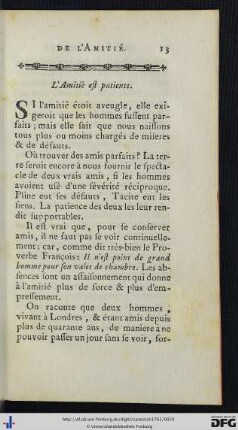 DE L'AMITIÉ. 13
L'Amitié est patiente.
SI l'amitié étoit aveugle, elle exi-
geroit que les hommes fussent par-
faits; mais elle sait que nous naissons
tous plus ou moins chargés de misères
& de défauts.
Où trouver des amis parfaits? La ter-
re seroit encore à nous fournir le specta-
cle de deux vrais amis, si les hommes
avoient usé d'une sévérité réciproque.
Pline eut ses défauts, Tacite eut les
siens. La patience des deux les leur ren-
dit supportables.
Il est vrai que, pour se conserver
amis, il ne faut pas se voir continuelle-
ment; car, comme dit très-bien le Pro-
verbe François: Il n'est point de grand
homme pour son valet de chambre. Les ab-
sences sont un assaisonnement qui donne
à l'amitié plus de force & plus d'em-
pressement.
On raconte que deux hommes,
vivant à Londres, & étant amis depuis
plus de quarante ans, de manière à ne
pouvoir passer un jour sans se voir, for-
© Universitätsbibliothek Freiburg
DFG